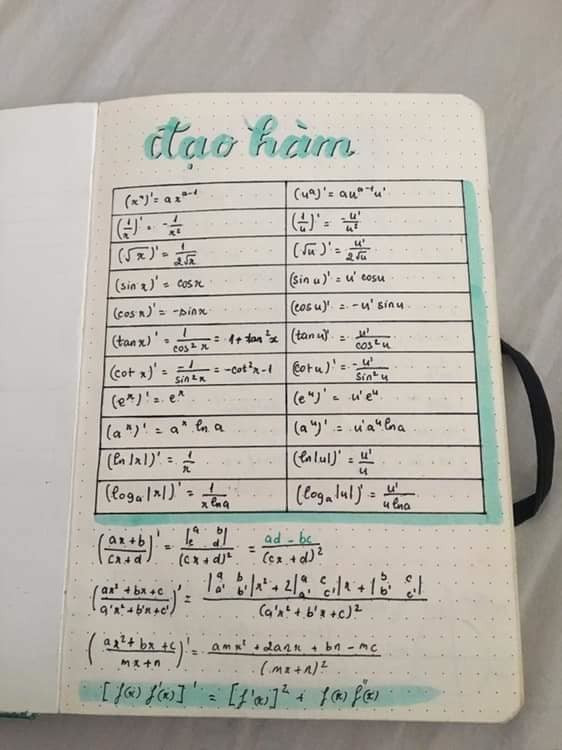 đạo hàm
(xᵃ)' = axᵃ⁻¹ (uᵃ)' = auᵃ⁻¹u'
(1/x)' = -1/x² (1/u)' = -u'/u²
(√x)' = 1/2√x (√u)' = u'/2√u
(sin x)' = cosx (sin u)' = u' cosu
(cosx)' = -sinx (cosu)' = -u' sinu
(tanx)' = 1/cos²x = 1 + tan²x (tanu)' = u'/cos²u
(cot x)' = -1/sin²x = -cot²x-1 (cotu)' = -u'/sin²u
(eˣ)' = eˣ (eᵘ)' = u'eᵘ
(aˣ)' = aˣ ln a (aᵘ)' = u'aᵘ lna
(ln|x|)' = 1/x (ln|u|)' = u'/u
(logₐ|x|)' = 1/x lna (logₐ|u|)' = u'/u lna
((ax+b)/(cx+d))' = |a b; c d|/(cx+d)² = (ad - bc)/(cx+d)²
((ax²+bx+c)/(a'x²+b'x+c'))' = (|a b; a' b'|x² + 2|a c; a' c'|x + |b c; b' c'|)/(a'x²+b'x+c)²
((ax²+bx+c)/(mx+n))' = (amx² + 2anx + bn - mc)/(mx+n)²
[f(x) f'(x)]' = [f'(x)]² + f(x) f''(x)